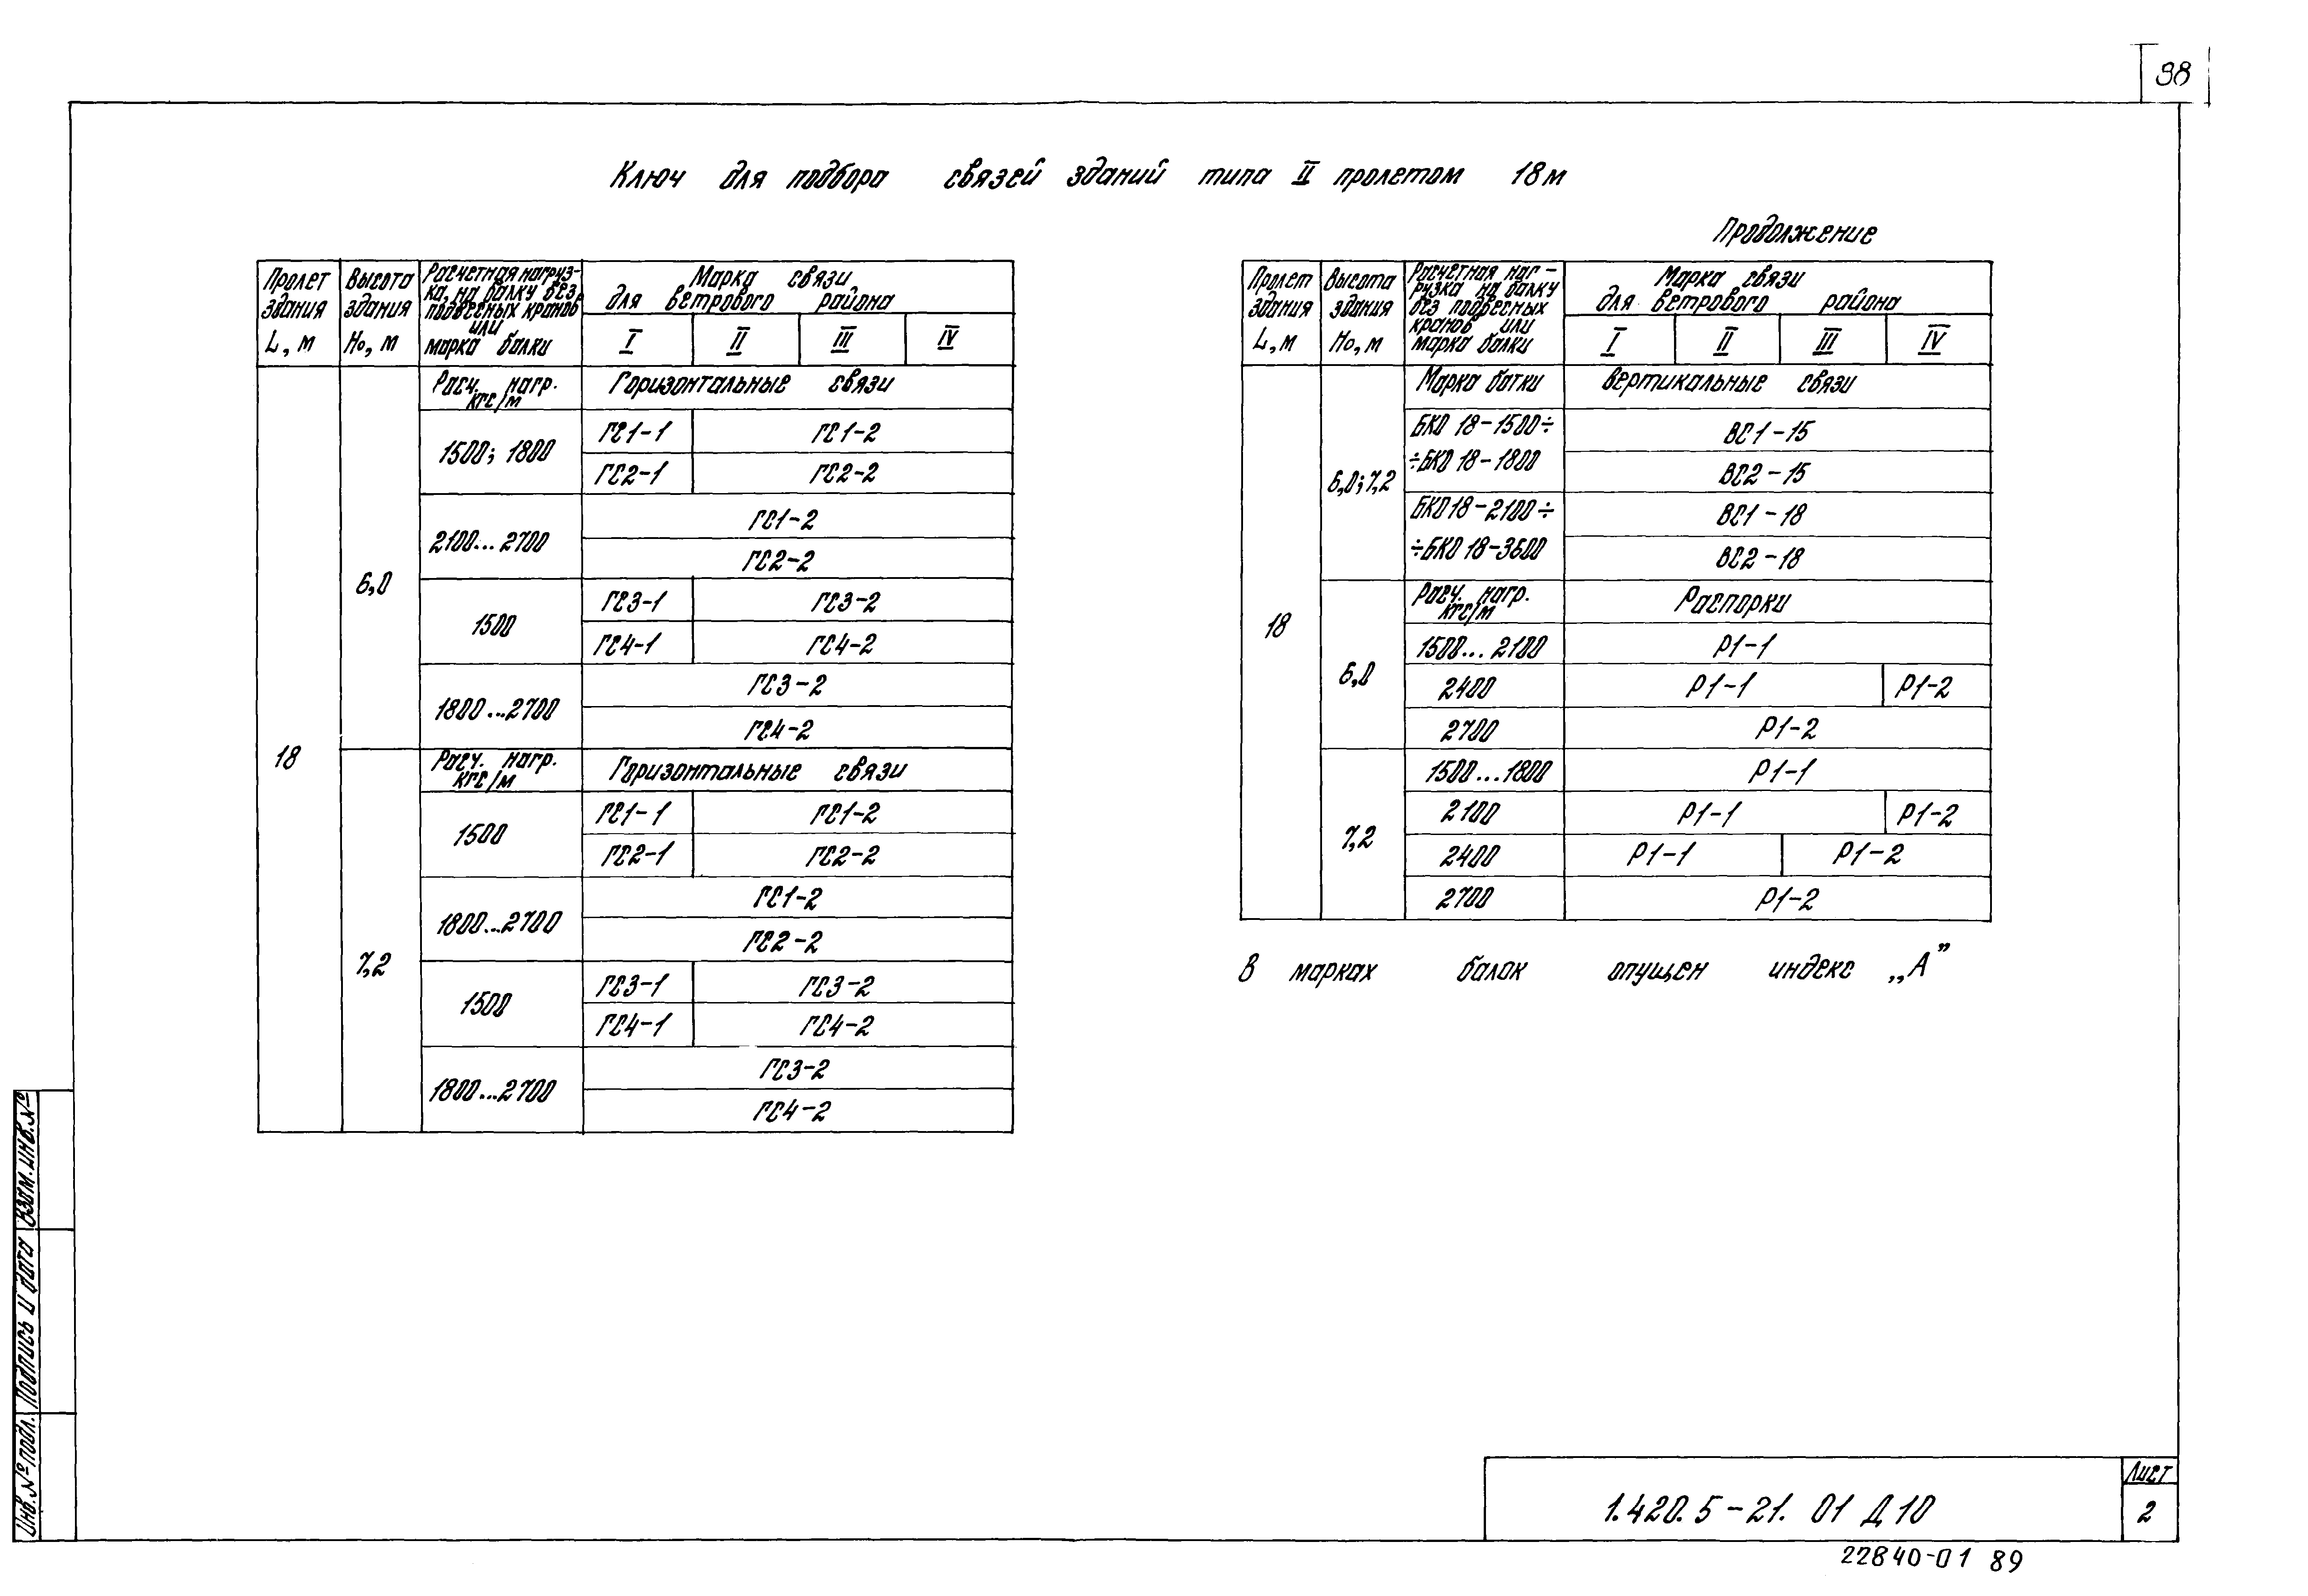 98
Ключ для подбора связей зданий типа II пролетом 18 м
Продолжение
Пролет здания L, м
Высота здания Но, м
Расчетная нагруз-
ка, на балку без
подвесных кранов
или
марка балки
Марка связи
для ветрового района
I II III IV
18
6,0
Расч. нагр. кгс/м
Горизонтальные связи
1500; 1800
ГС1-1 ГС1-2
ГС2-1 ГС2-2
2100...2700
ГС1-2
ГС2-2
1500
ГС3-1 ГС3-2
ГС4-1 ГС4-2
1800...2700
ГС3-2
ГС4-2
7,2
Расч. нагр. кгс/м
Горизонтальные связи
1500
ГС1-1 ГС1-2
ГС2-1 ГС2-2
1800...2700
ГС1-2
ГС2-2
1500
ГС3-1 ГС3-2
ГС4-1 ГС4-2
1800...2700
ГС3-2
ГС4-2
Пролет здания L, м
Высота здания Но, м
Расчетная наг-
рузка на балку
без подвесных
кранов или
марка балки
Марка связи
для ветрового района
I II III IV
18
6,0; 7,2
Марка балки
Вертикальные связи
БКО 18-1500÷
÷БКО 18-1800
ВС1-15
ВС2-15
БКО 18-2100÷
÷БКО 18-3600
ВС1-18
ВС2-18
6,0
Расч. нагр. кгс/м
Распорки
1500...2100 Р1-1
2400 Р1-1 Р1-2
2700 Р1-2
7,2
1500...1800 Р1-1
2100 Р1-1 Р1-2
2400 Р1-1 Р1-2
2700 Р1-2
В марках балок опущен индекс „А”
Инв. № подл. Подпись и дата Взам. инв. №
1.420.5-21. 01 Д10
Лист
2
22840-01 89